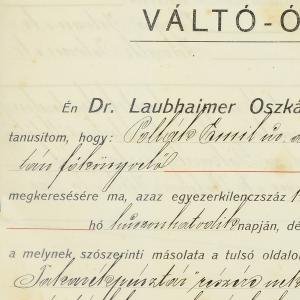 VÁLTÓ-Ó
Én Dr. Laubhaimer Oszká
tanusitom, hogy: Pollák Emil úr, a
ban főkönyvelő
megkeresésére ma, azaz egyezerkilenczszáz
hó huszonhatodik napján, dé
a melynek szószerinti másolata a tulsó oldalo
Takarékpénztár részére